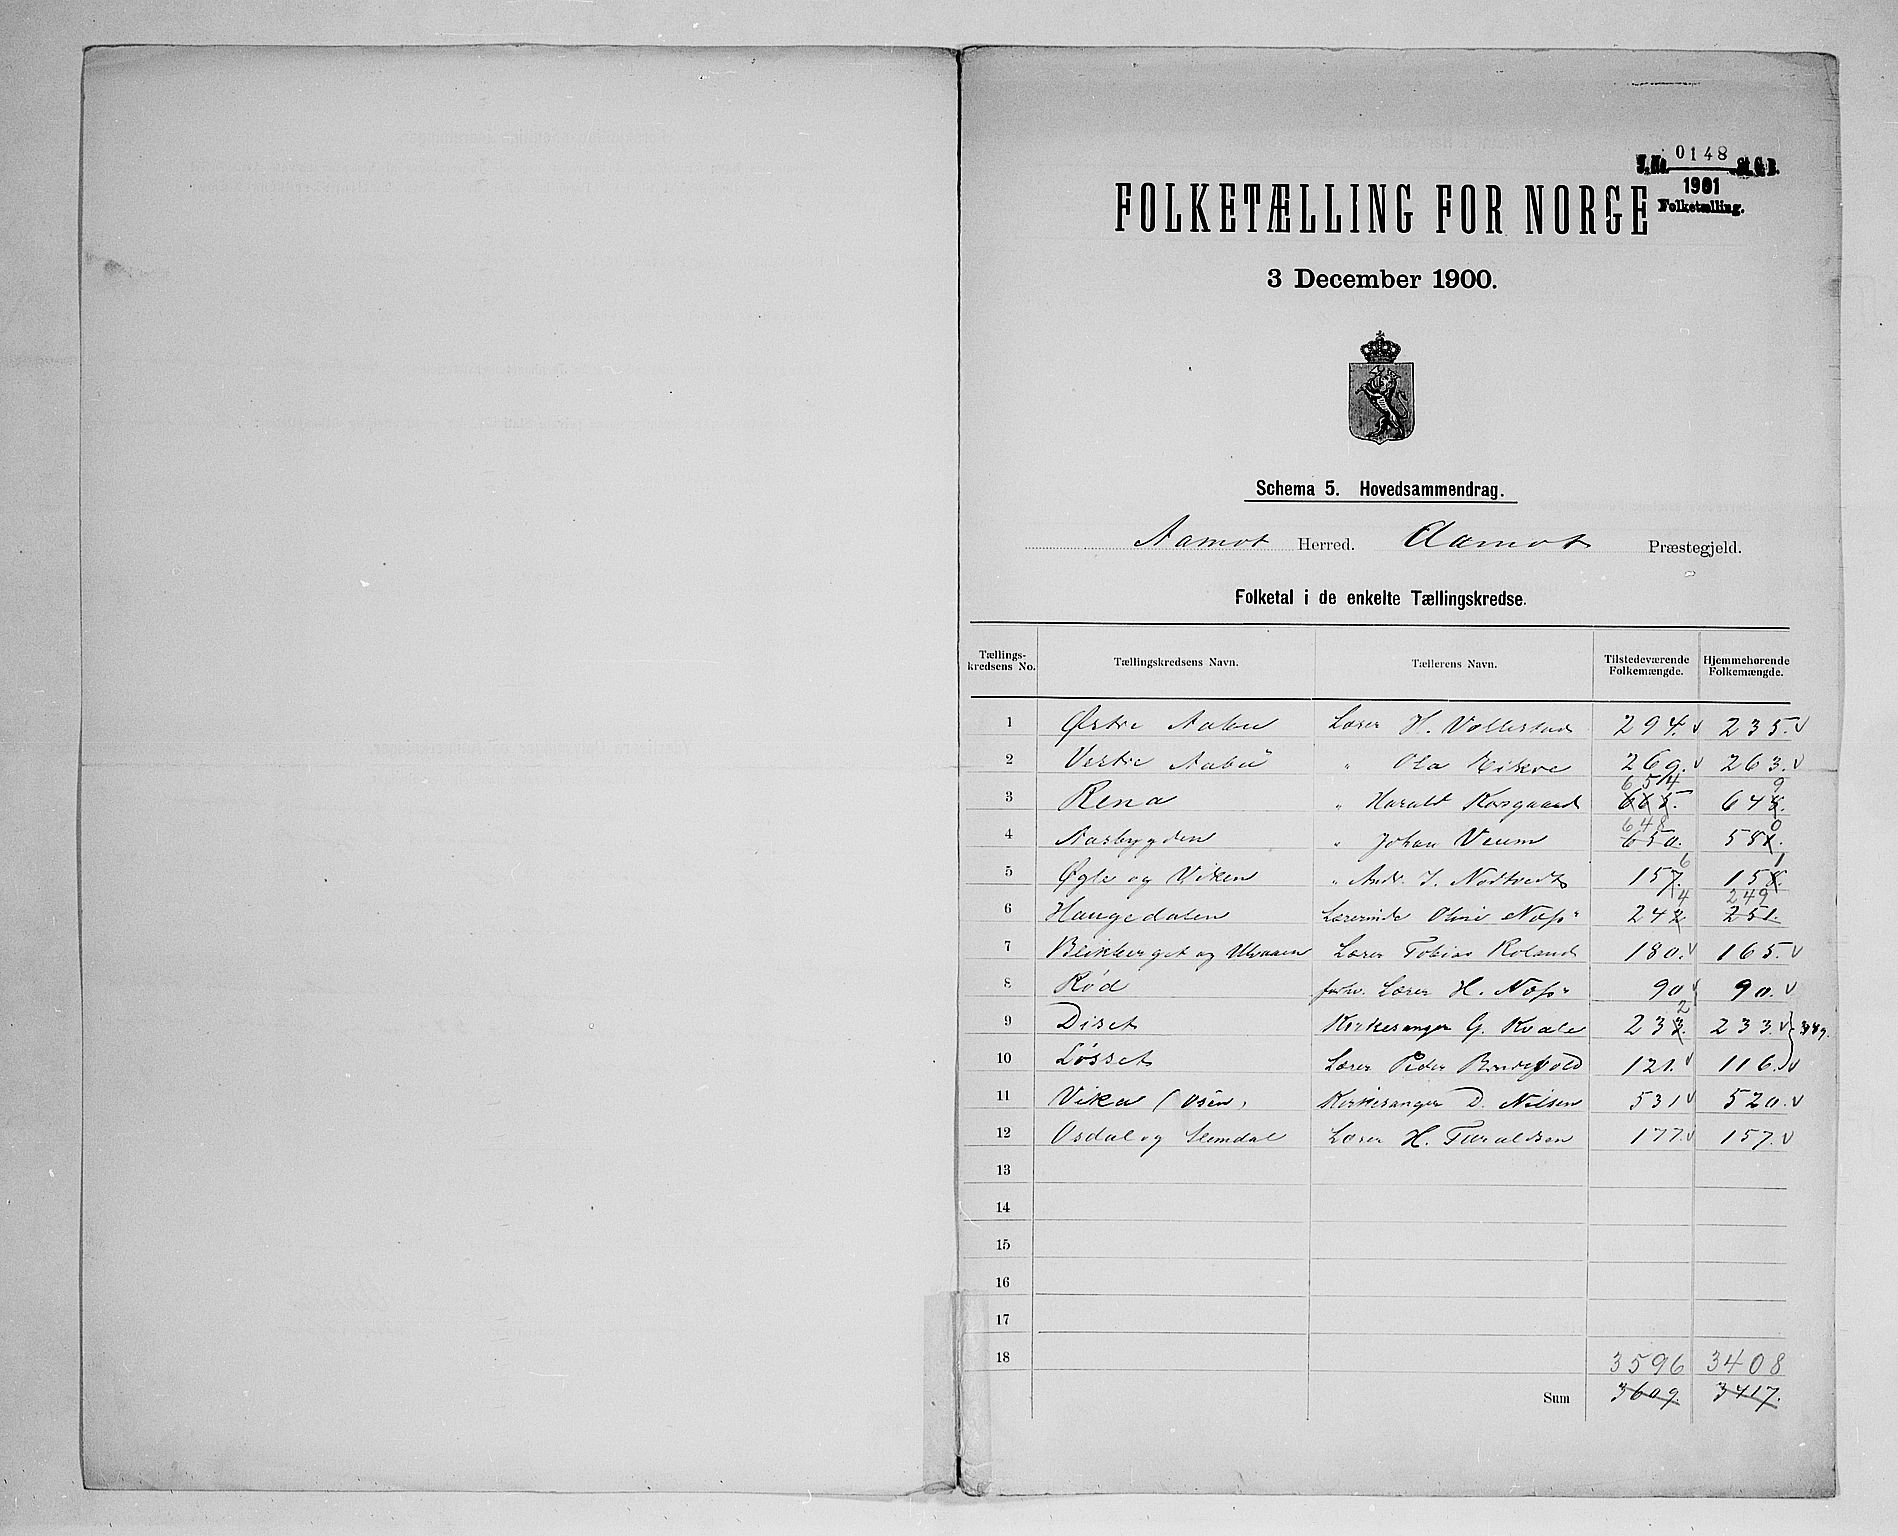 J.No. 0148 St.C.B.
1901
Folketælling.
FOLKETÆLLING FOR NORGE
3 December 1900.
Schema 5. Hovedsammendrag.
Aamot Herred. Aamot Præstegjeld.
Folketal i de enkelte Tællingskredse.
Tællings-kredsens No. Tællingskredsens Navn. Tællerens Navn. Tilstedeværende Folkemængde. Hjemmehørende Folkemængde.
1 Østre Aabu Lærer H. Vollestad 294. v 235. v
2 Vestre Aabu " Ola 269. v 263. v
654 9
3 Rena " Harald Korsgaard 665. 648.
648 0
4 Aasbygden " Johan Veum 650. 581.
6 1
5 Øgle og Viken " Andr. J. Nødtvedt 157. 158.
4 249
6 Haugedalen Lærerinde Oline Næss 242 251.
7 Blikberget og Ulvaaen Lærer Tobias Roland 180. v 165. v
8 Rød forhv. Lærer H. Næss 90 v 90. v
2
9 Diset Kirkesanger G. Kvale 233. 233. v 349.
10 Løsset Lærer Peder 121. v 116. v
11 Vika (Osen) Kirkesanger D. Nilsen 531 v 520. v
12 Osdal og Slemdal Lærer H. Taraldsen 177. v 157. v
13
14
15
16
17
18 3596 3408
Sum 3609. 3417.